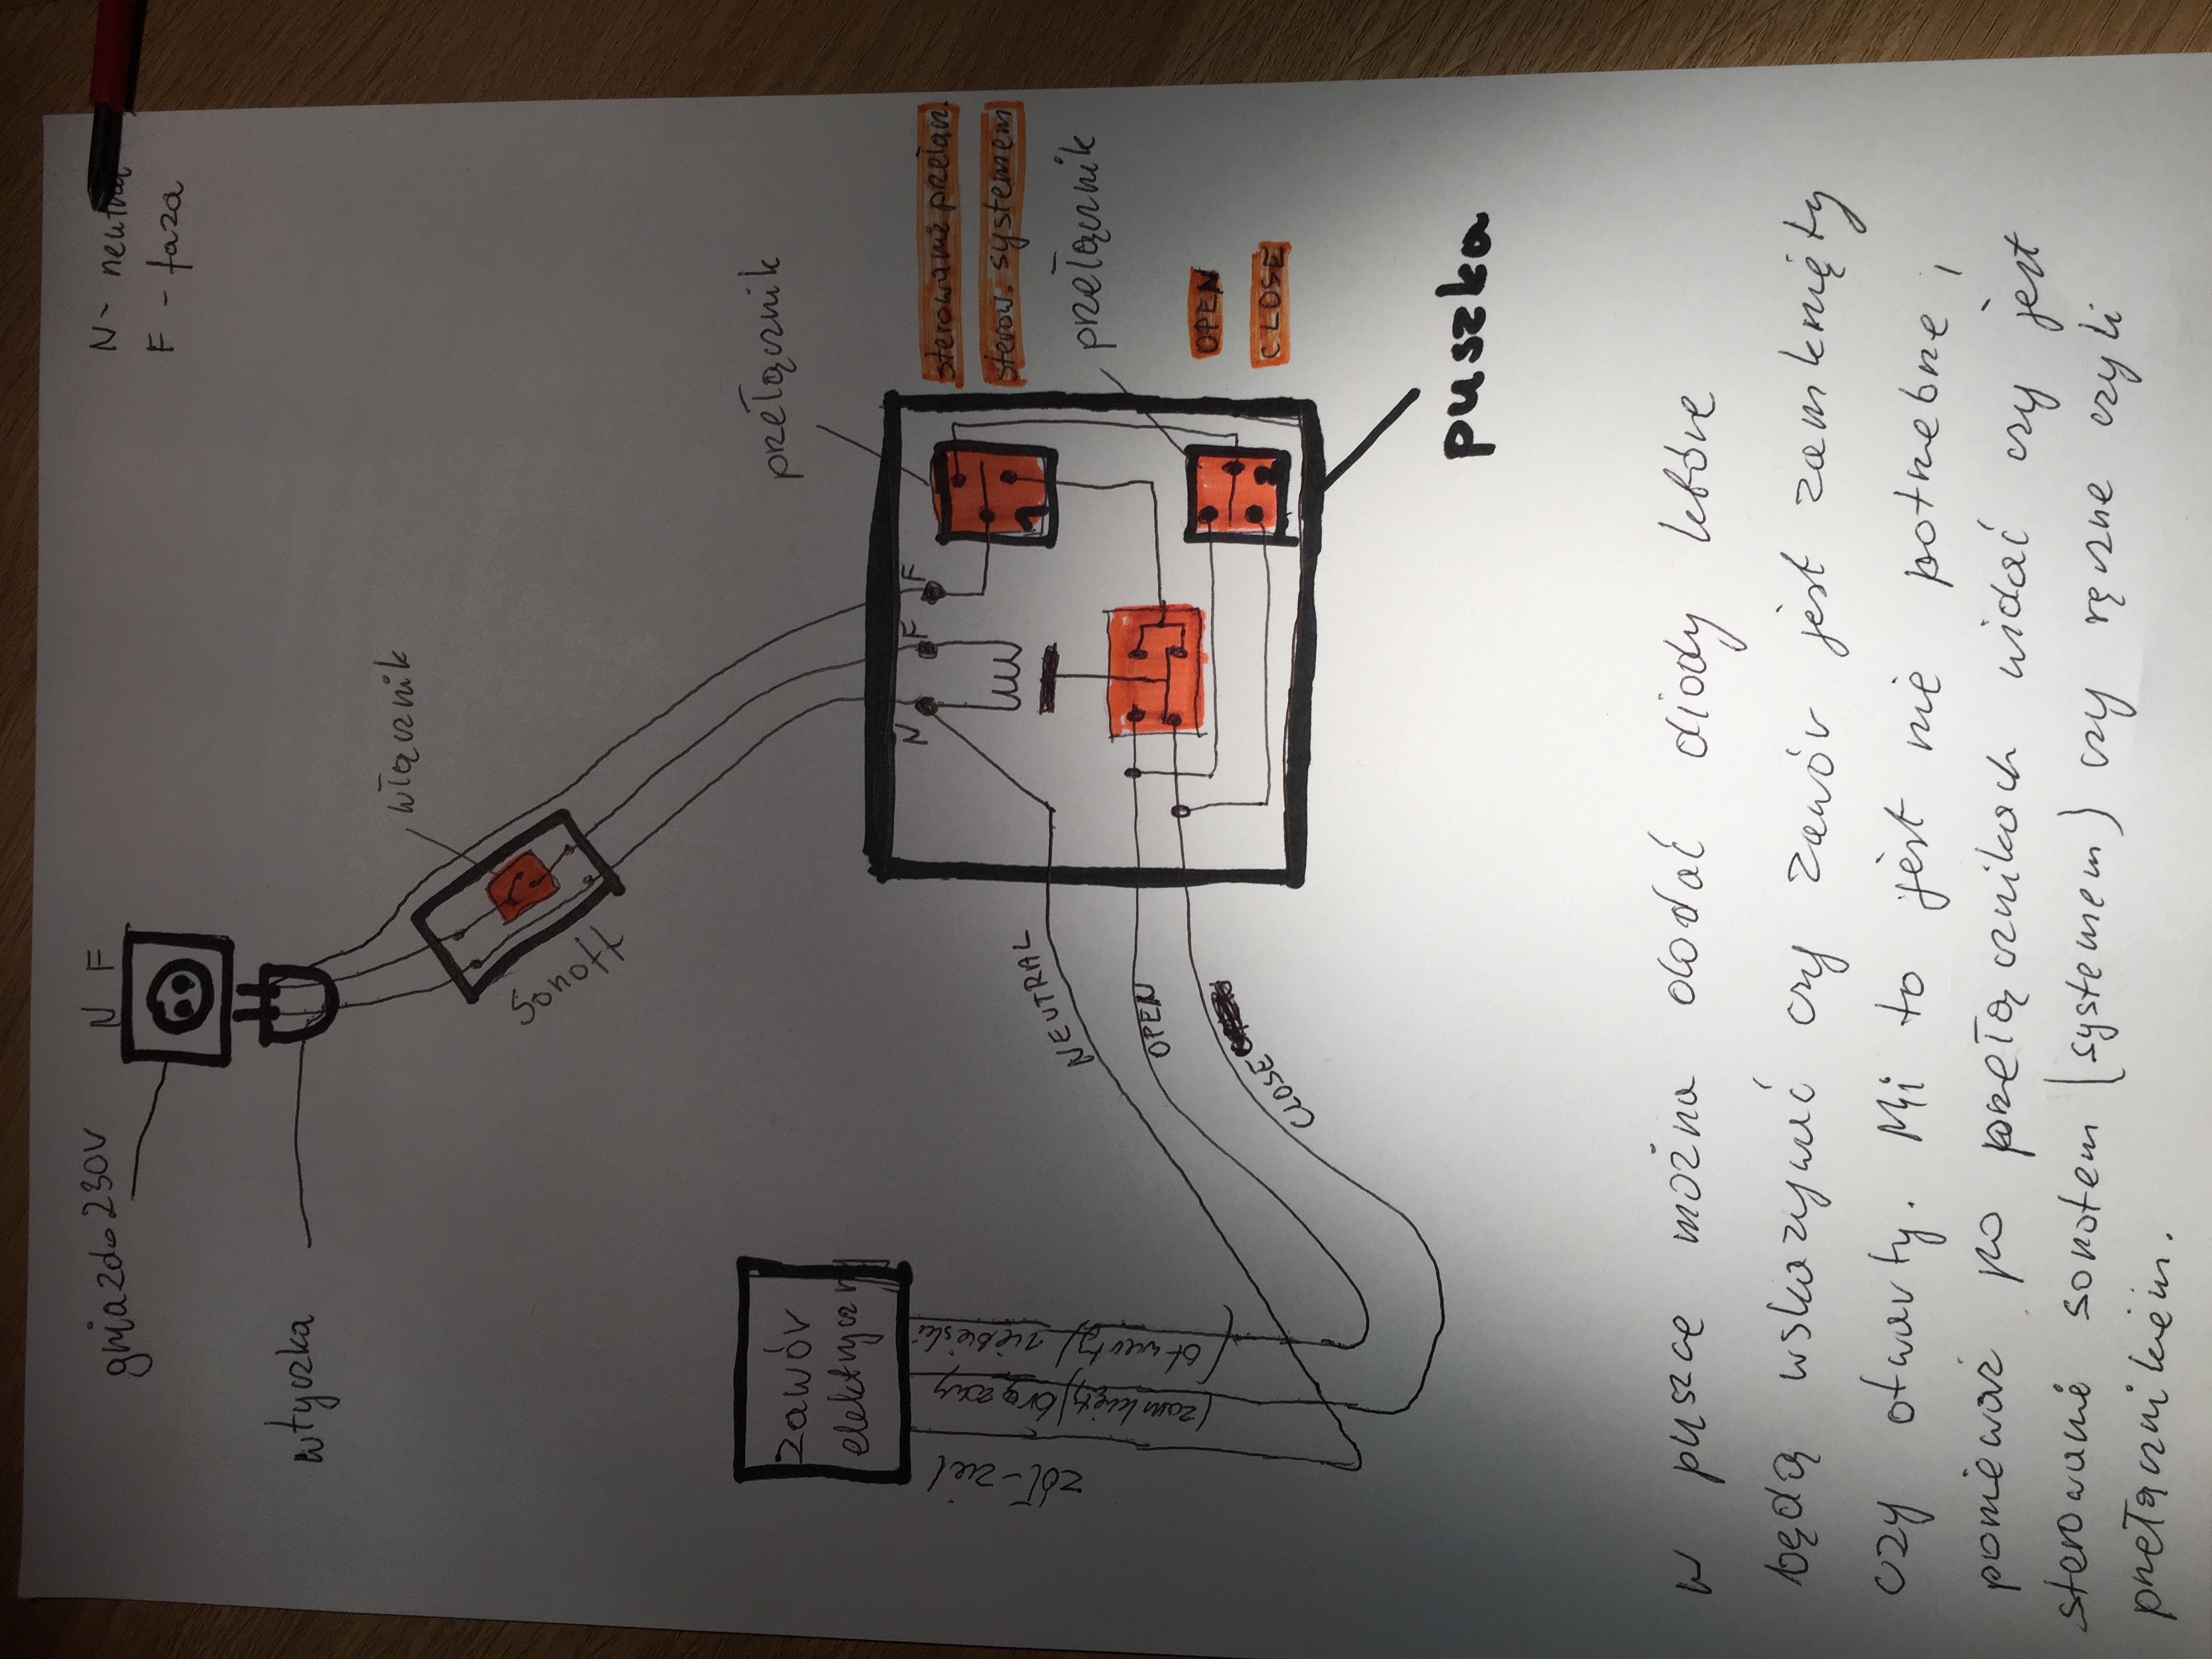 N - neutral
F - faza
gniazdo 230V
N F
wtyczka
włącznik
Sonoff
przełącznik
sterowanie przełącz.
sterow. systemem
przełącznik
OPEN
CLOSE
puszka
N F F
1
2
NEUTRAL
OPEN
CLOSE
zawór
elektryczny
żół-ziel
(zamknięty) brązowy
(otwarty) niebieski
W puszce można dodać diody które
będą wskazywać czy zawór jest zamknięty
czy otwarty. Mi to jest nie potrzebne,
ponieważ po przełącznikach widać czy jest
sterowanie sonofem (systemem) czy ręczne czyli
przełącznikiem.